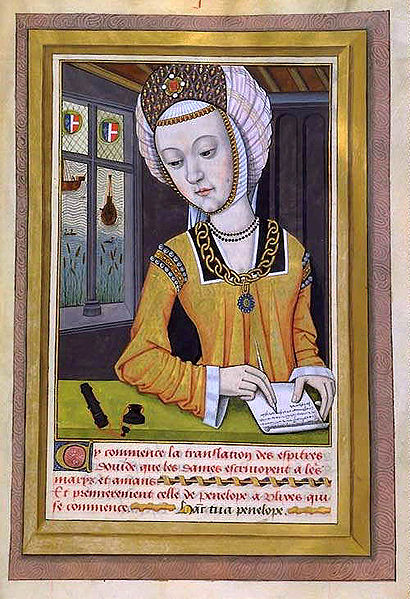 Cy commence la translation des espitres
Douide que les dames escriuoyent a les
maryz et amans
Et premierement celle de penelope a Vlixes qui
se commence. Hāc tua penelope.